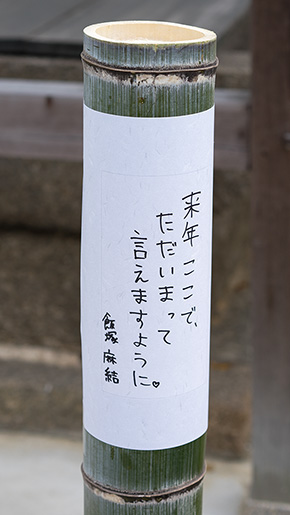 来年 ここで、
ただいまって
言えますように♥
飯塚 麻結